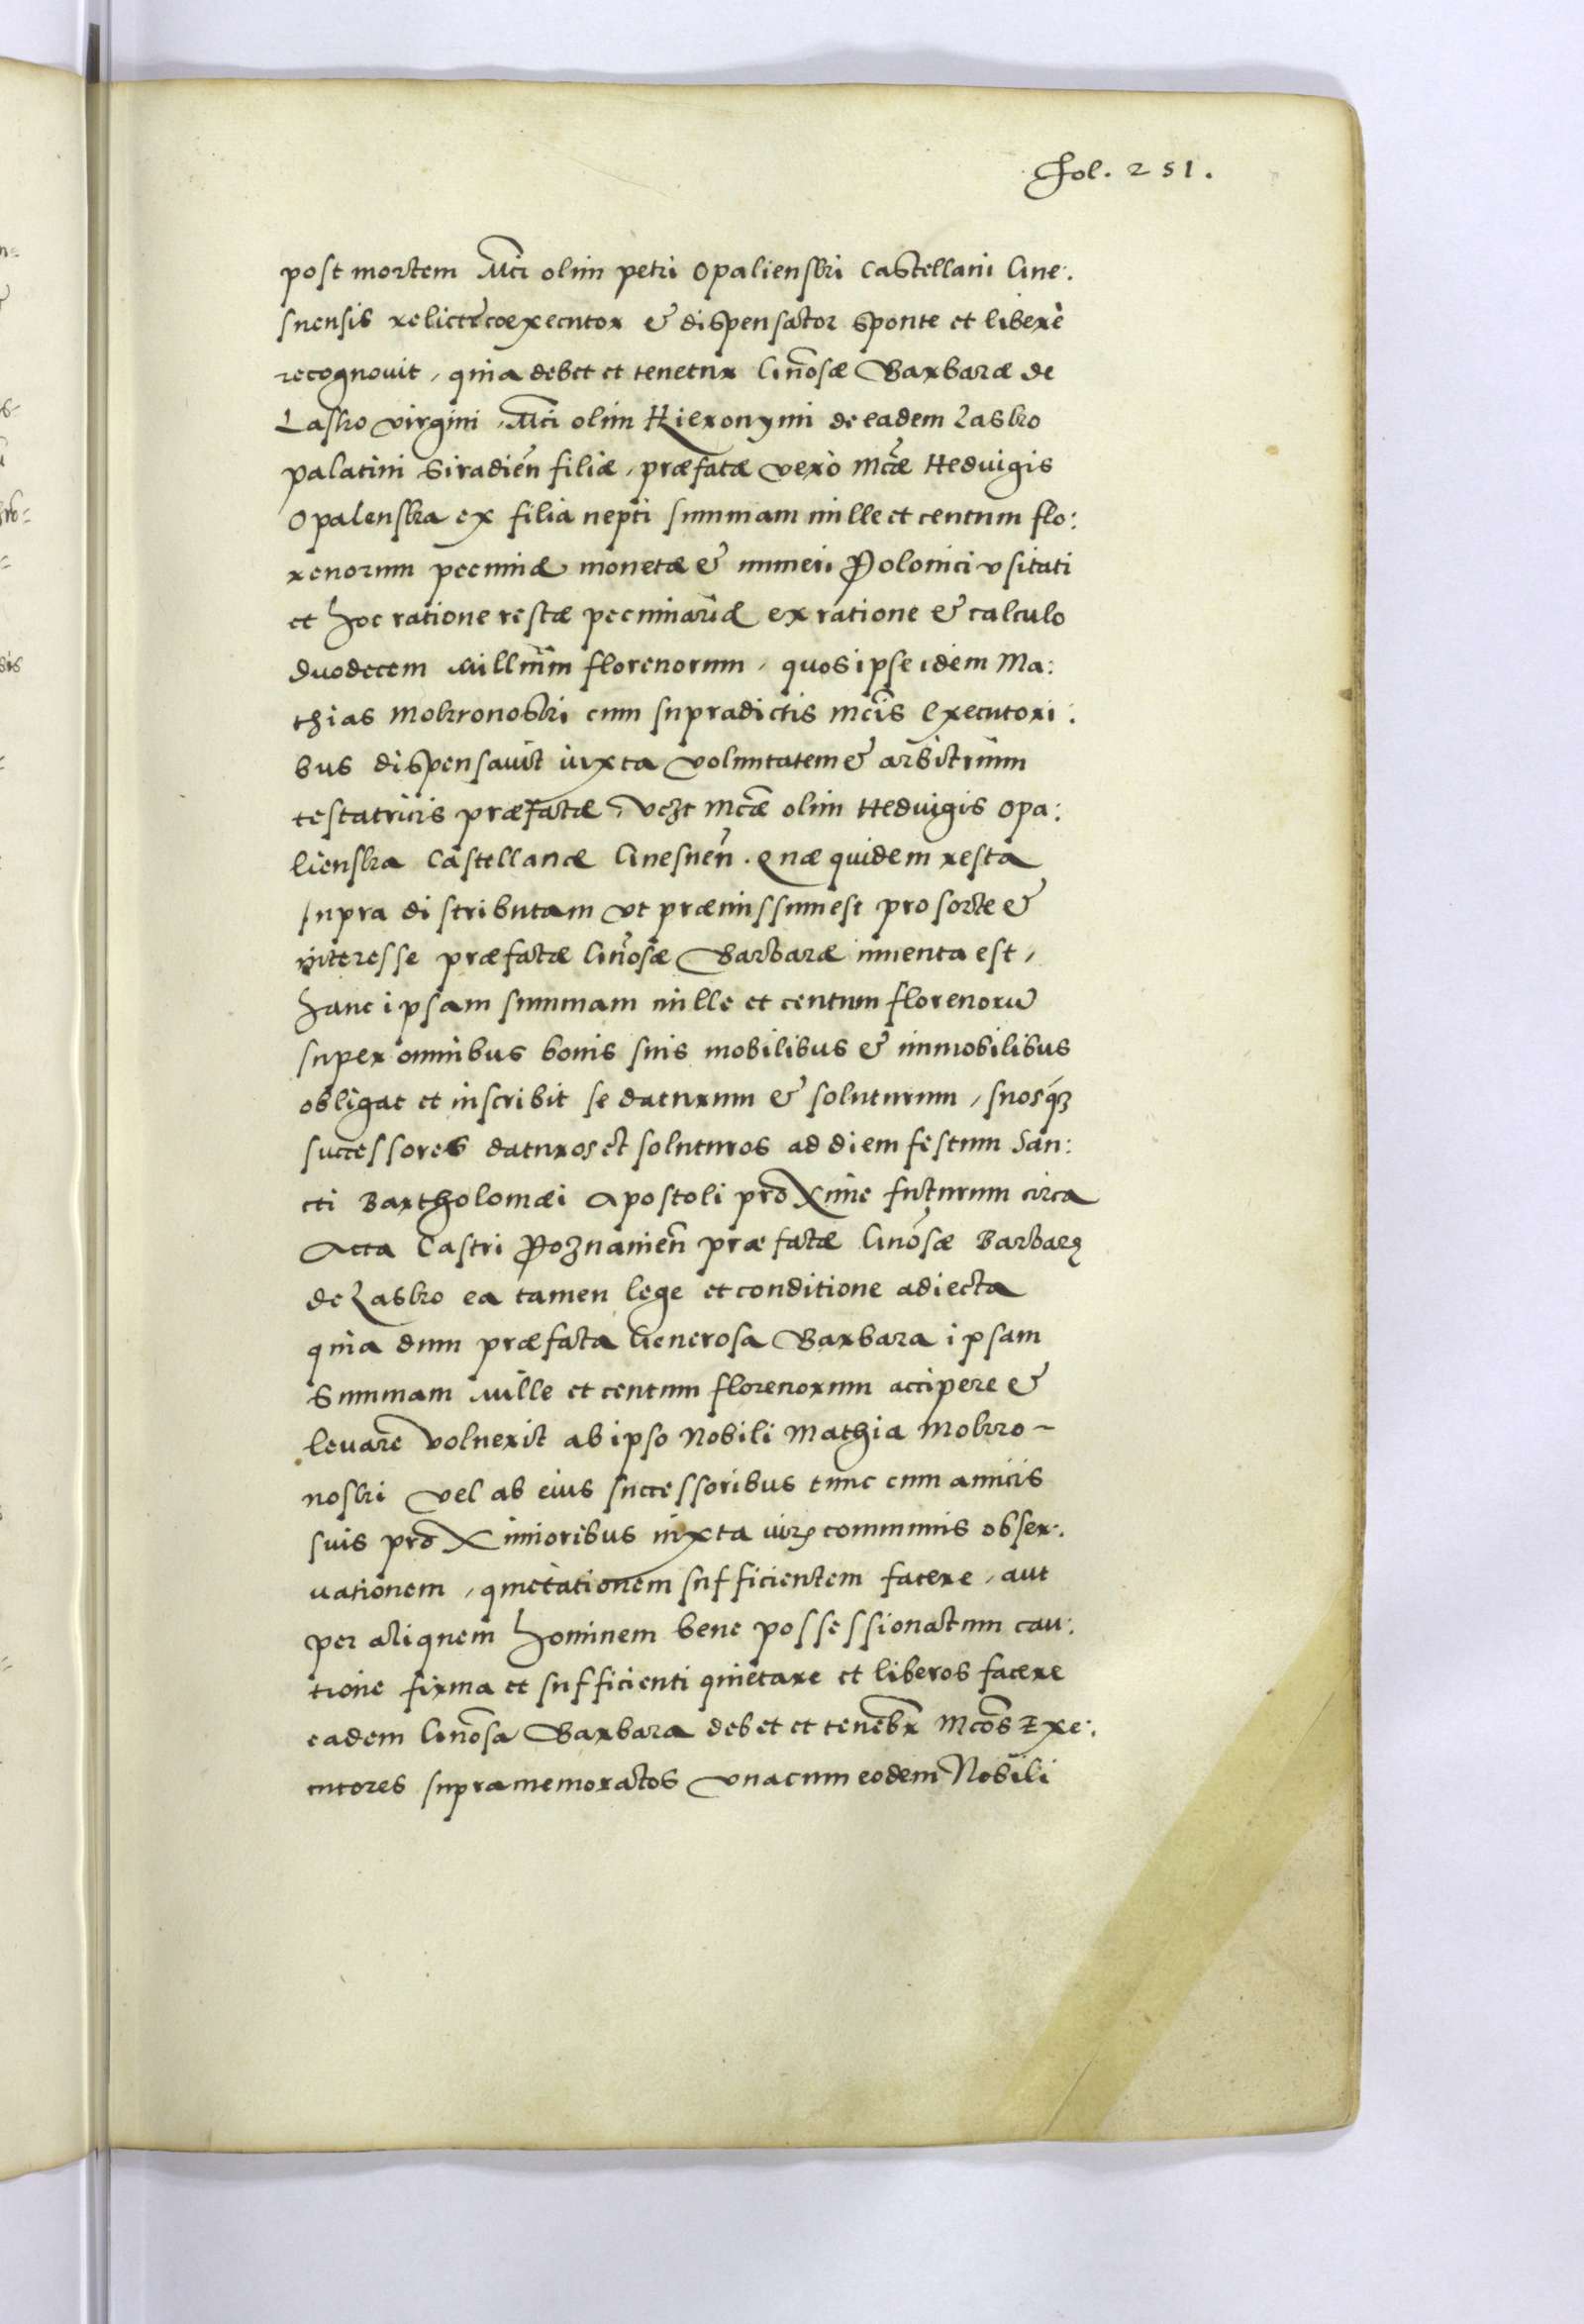 Fol. 251.
post mortem Mci olim petri Opalienski Castellani Gne:
snensis relictę coexecutor & dispensator sponte et liberè
recognouit, quia debet et tenetur Gn̄osæ Barbaræ de
Lasko virgini, Mci olim Hieronymi de eadem Lasko
palatini Siradien̄ filiæ, præfatæ verò Mcæ Heduigis
Opalenska ex filia nepti summam mille et centum flo:
renorum pecuniæ monetæ & numeri Polonici vsitati
et hoc ratione restæ pecuniariæ ex ratione & calculo
duodecem Millium florenorum, quos ipse idem Ma:
thias Mokronoski cum supradictis Mcis Executori:
bus dispensauit iuxta voluntatem & arbitrium
testatricis præfatæ, vezt Mcæ olim Heduigis Opa:
lienska Castellanæ Gnesnen̄. Quæ quidem resta
supra distributam vt præmissum est pro sorte &
interesse præfatæ Gn̄osæ Barbaræ inuenta est,
hanc ipsam summam mille et centum florenorū
super omnibus bonis suis mobilibus & immobilibus
obligat et inscribit se daturum & soluturum, suosq́ꝫ
successores daturos et soluturos ad diem festum San:
cti Bartholomæi Apostoli proxime futurum circa
Acta Castri Poznanien̄ præfatæ Gn̄osæ Barbarę
de Lasko ea tamen lege et conditione adiecta
quia dum præfata Generosa Barbara ipsam
Summam Mille et centum florenorum accipere &
leuare voluerit ab ipso Nobili Mathia Mokro-
noski vel ab eius successoribus tunc cum amicis
suis proximioribus iuxta iur̨ communis obser:
uationem, quietationem sufficientem facere, aut
per aliquem hominem bene possessionatum cau:
tione firma et sufficienti quietare et liberos facere
eadem Gn̄osa Barbara debet et tenebr̄ Mcos Exe:
cutores supramemoratos vnacum eodem Nobili